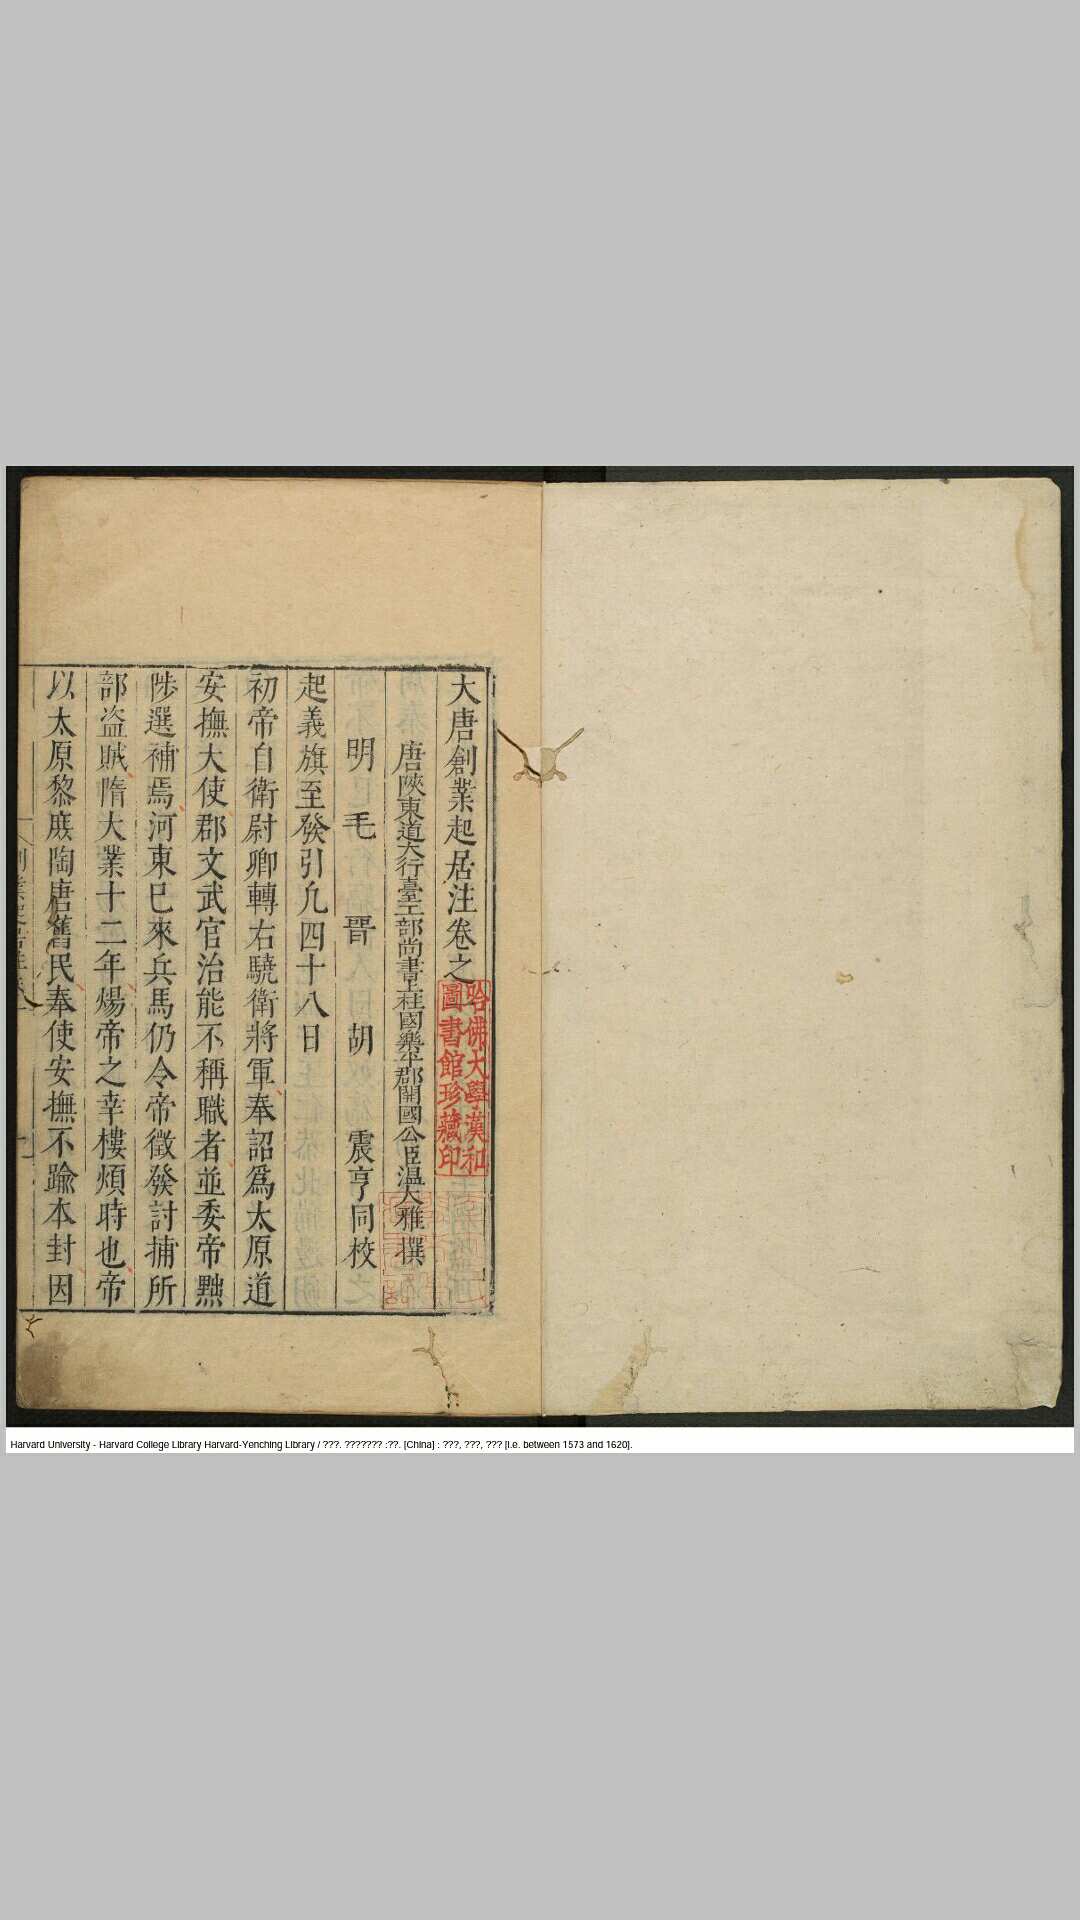 大唐創業起居注卷之
唐陝東道大行臺工部尚書上柱國樂平郡開國公臣溫大雅撰
明 毛 晉 胡 震亨同校
起義旗至發引凢四十八日
初帝自衛尉卿轉右驍衛將軍奉詔爲太原道
安撫大使郡文武官治能不稱職者並委帝黜
陟選補焉河東已來兵馬仍令帝徵發討捕所
部盗賊隋大業十二年煬帝之幸樓煩時也帝
以太原黎庶陶唐舊民奉使安撫不踰本封因
哈佛大學漢和
圖書館珍藏印
Harvard University - Harvard College Library Harvard-Yenching Library / ???. ??????? :??. [China] : ???, ???, ??? [i.e. between 1573 and 1620].